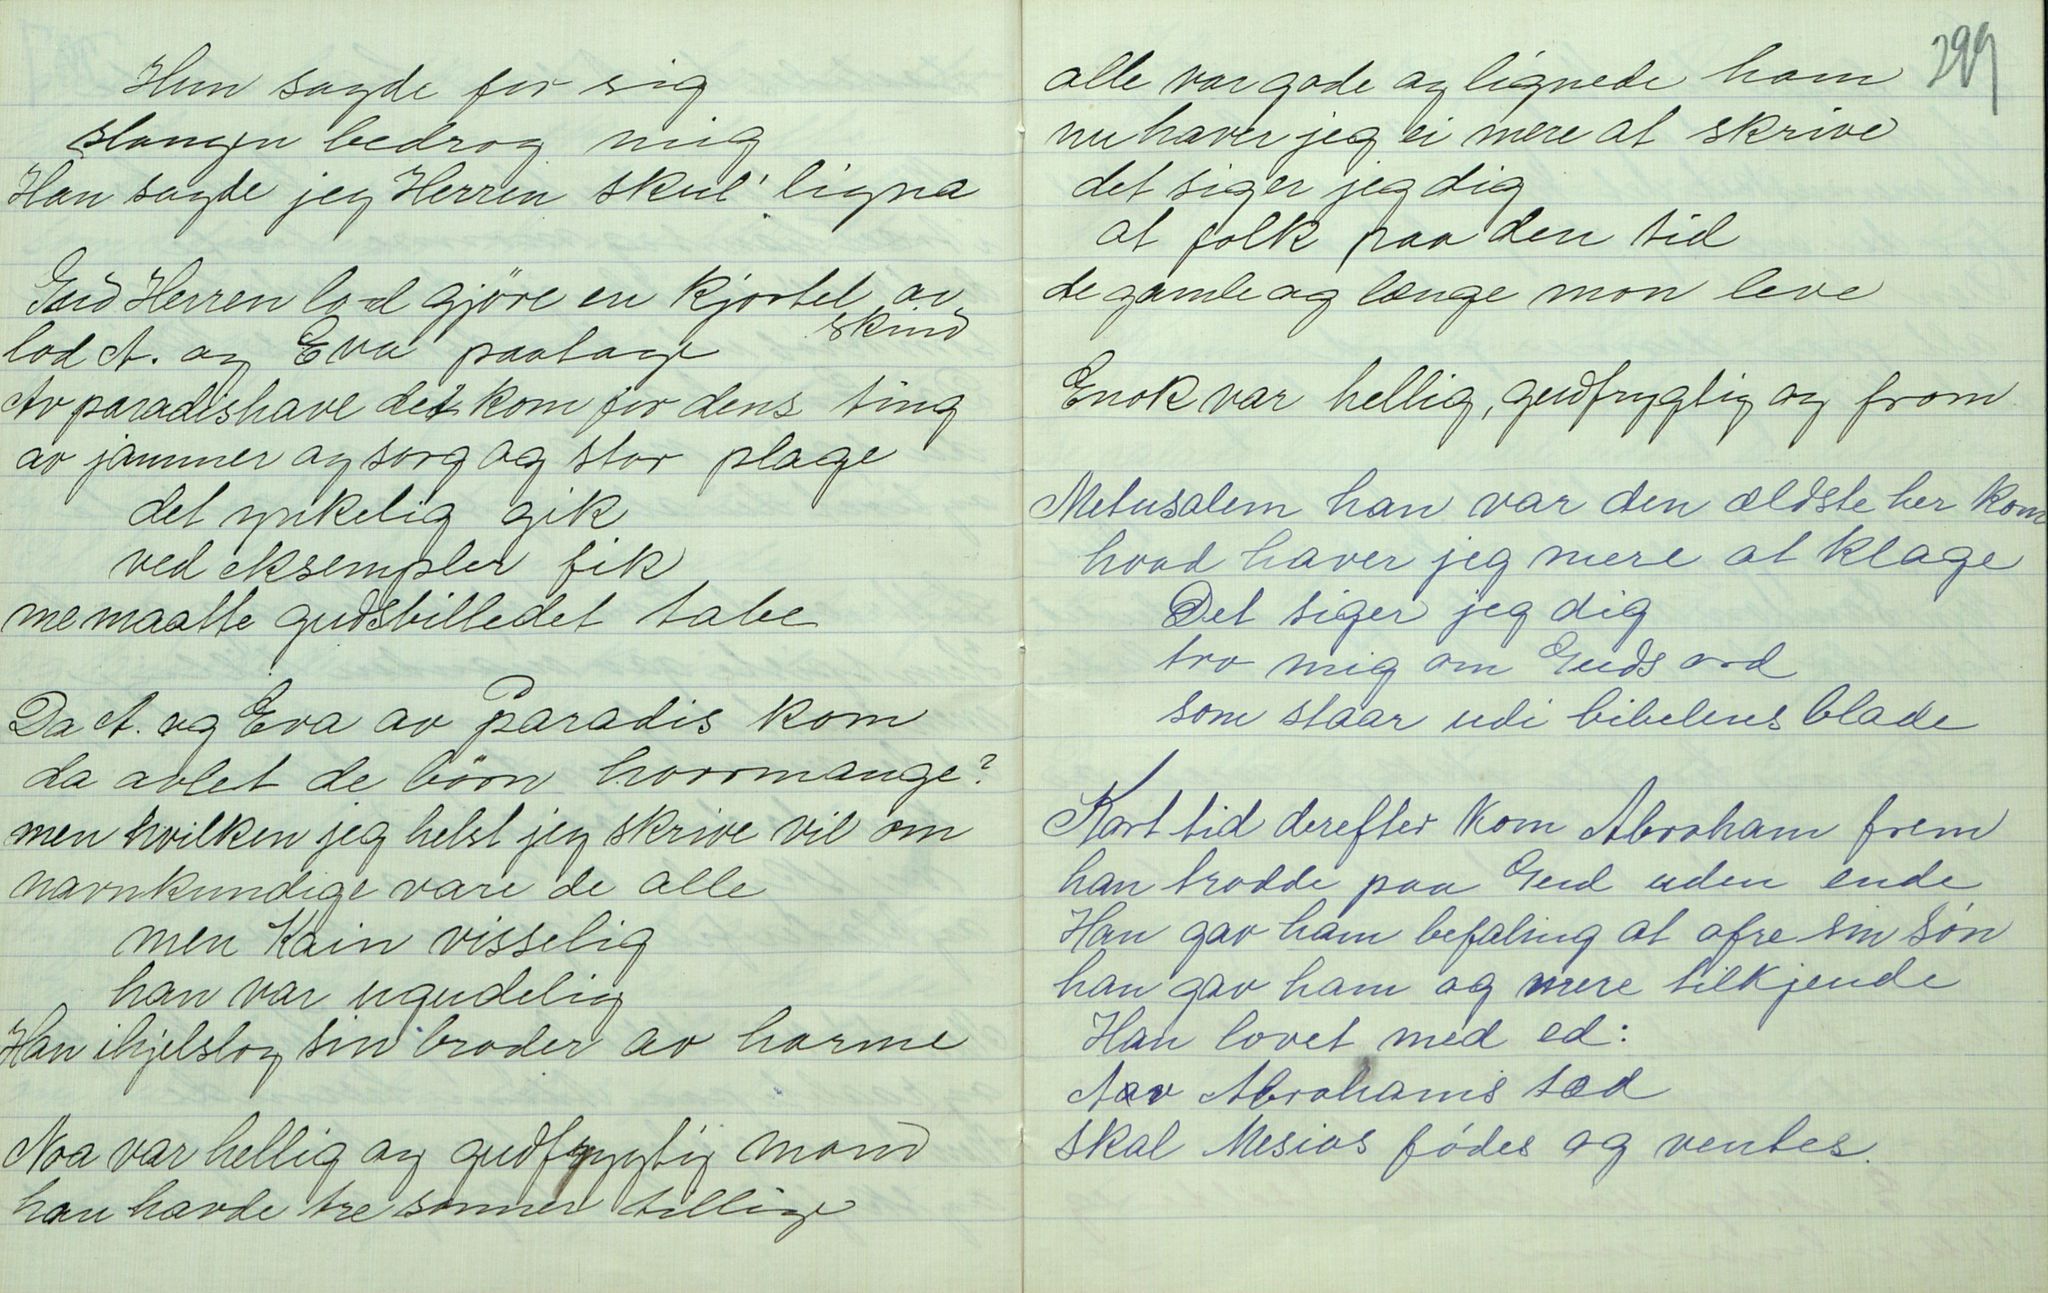 Hun sagde for sig
slangen bedrog mig
Han sagde jeg Herren skul' ligna
Gud Herren lod gjöre en kjortel av
skind
lod A. og Eva paatage
Av paradishave det kom for dens ting
av jammer og sorg og stor plage
det ynkelig gik
ved eksempler fik
me maatte gudsbilledet tabe
Da A. og Eva av Paradis kom
da avlet de börn hvormange?
men hvilken jeg helst jeg skrive vil om
navnkundige vare de alle
men Kain visselig
han var ugudelig
Han ihjelslog sin broder av harme
Noa var hellig og gudfrygtig mand
han havde tre sønner tillige
299
alle var gode og lignede ham
nu haver jeg ei mere at skrive
det siger jeg dig
at folk paa den tid
de gamle og længe mon leve
Enok var hellig, gudfrygtig og from
Metusalem han var den ældste her kom
hvad haver jeg mere at klage
Det siger jeg dig
tro mig om Guds ord
som staar udi bibelens blade
Kort tid derefter kom Abraham frem
han trodde paa Gud uden ende
Han gav ham befaling at ofre sin sön
han gav ham og mere tilkjende
Han lovet med ed:
Aav Abrahams sæd
skal Mesias födes og ventes.